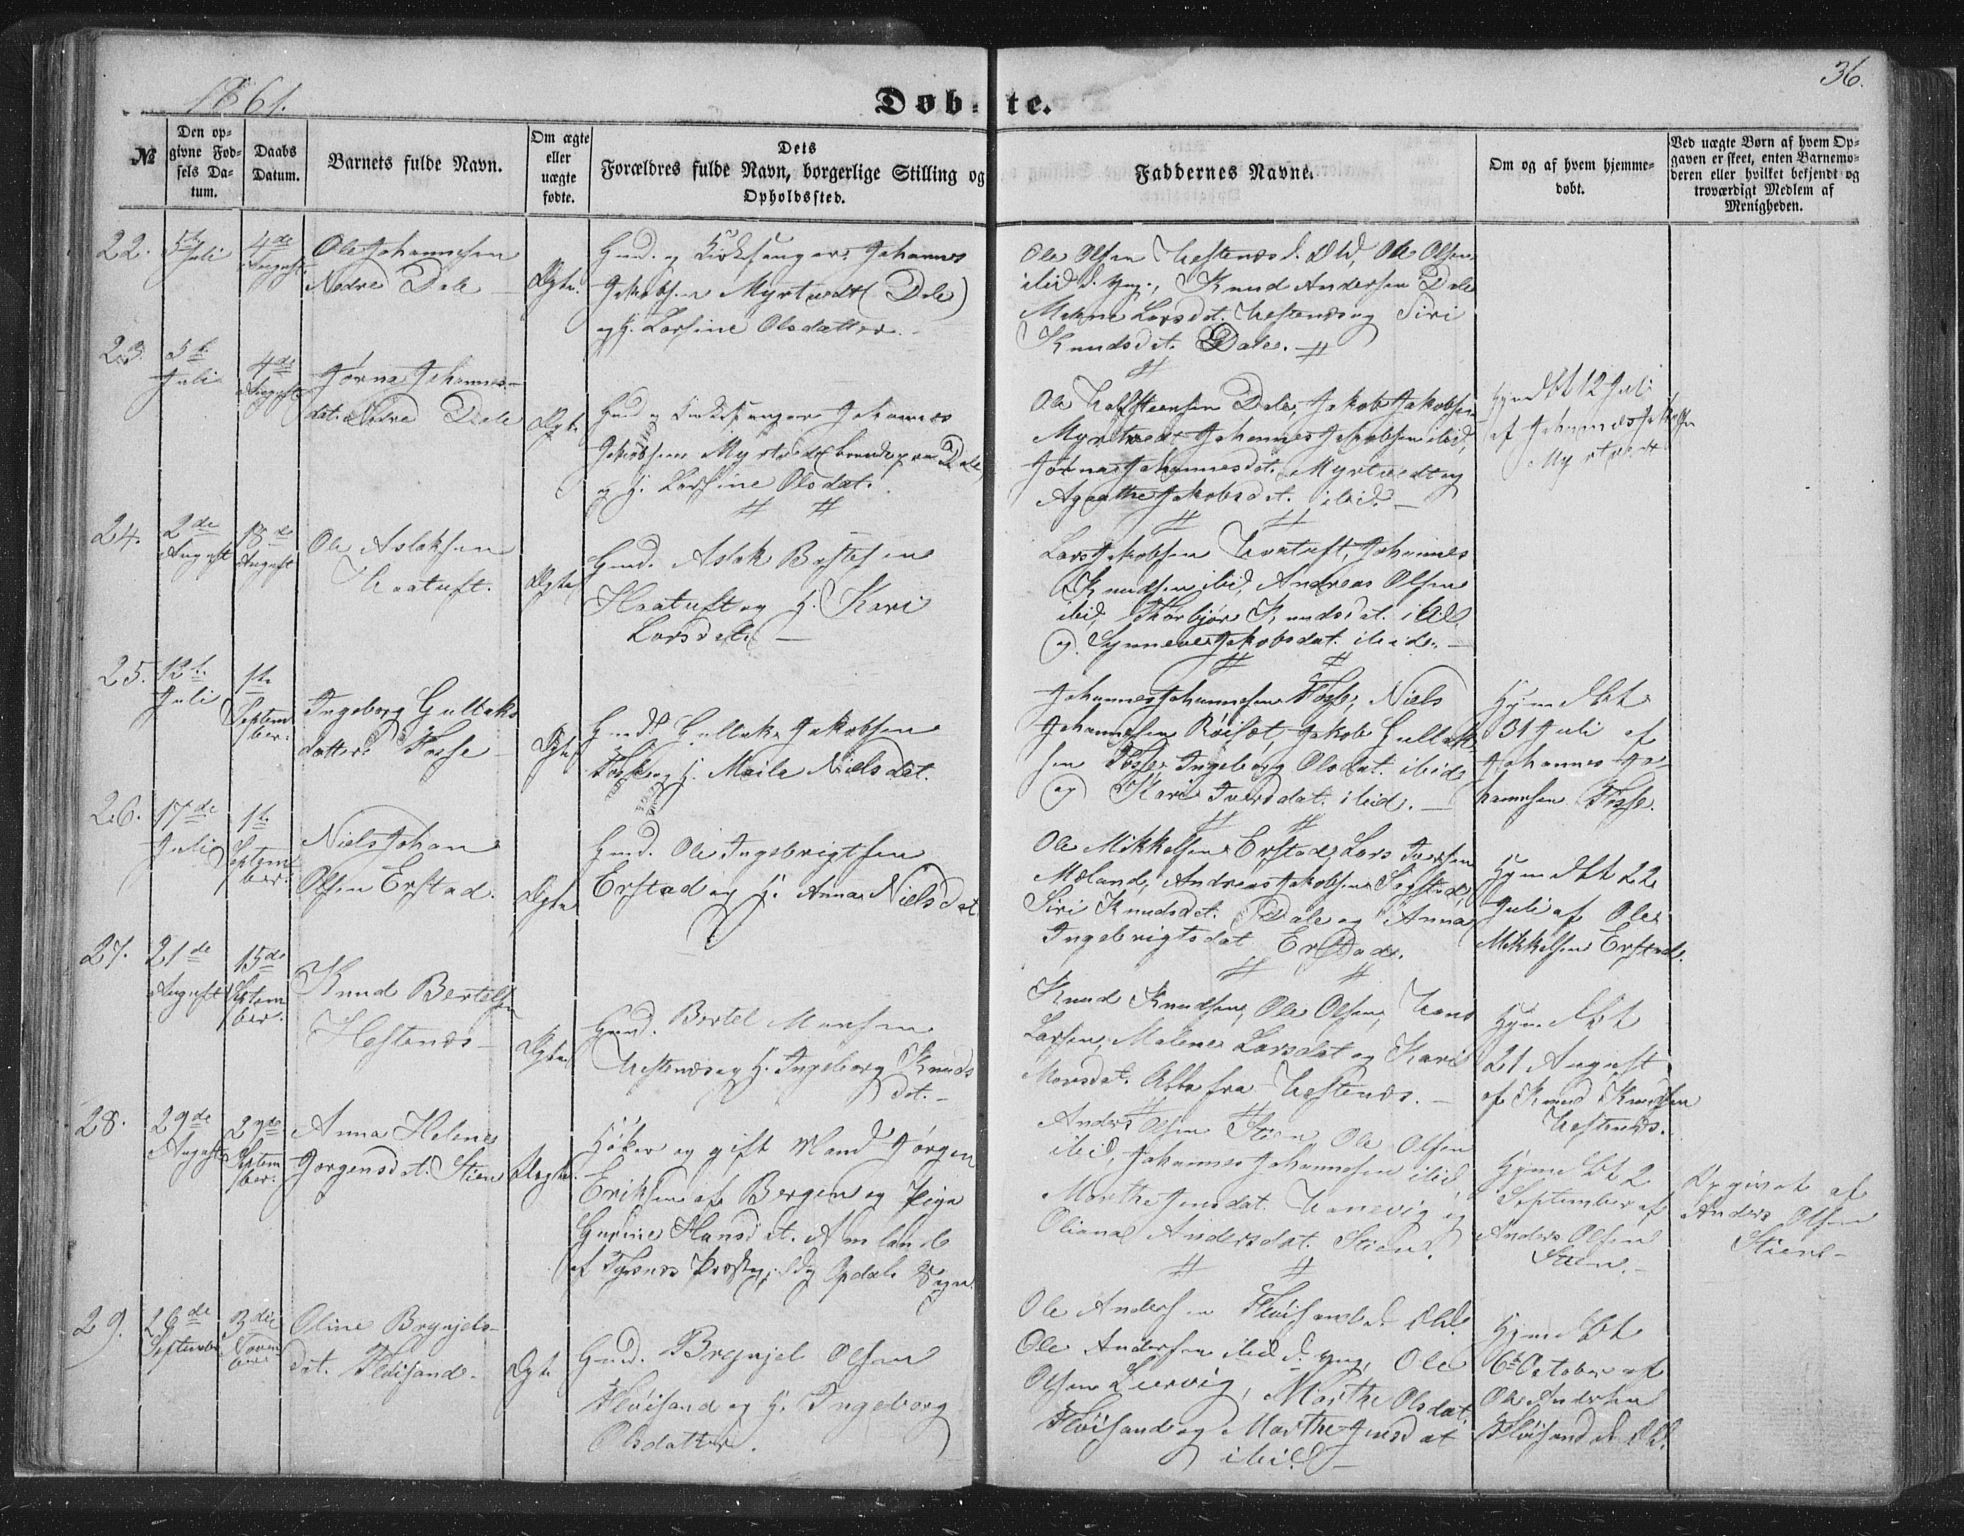 1861.
36.
Døbte.
№
Den opgivne Fødsels Datum.
Daabs Datum.
Barnets fulde Navn.
Om ægte eller uægte fødte.
Dets Forældres fulde Navn, borgerlige Stilling og Opholdssted.
Faddernes Navne.
Om og af hvem hjemmedøbt.
Ved uægte Børn af hvem Opgaven er skeet, enten Barnemoderen eller hvilket bekjendt og troværdigt Medlem af Menigheden.
22.
5te Juli
4de August
Ole Johannesen
Nedre Dale
Ægte.
Gmd. og Kirksanger Johannes
Jakobsen Myrtvedt (Dale)
og H. Larsine Olsdatter.
Ole Olsen Hestenæs d. Æld, Ole Olsen
ibid d. yng., Knud Andersen Dale
Malene Larsdat. Hestenæs og Siri
Knudsdat. Dale.
23.
5t. Juli
4de August
Jørna Johannes-
dat. Nedre Dale
Ægt.
Gmd og Kirksanger Johannes
Jakobsen Myrtvedt Dale
og H. Larsine Olsdat.
Ole Halfsteensen Dale, Jakob Jakobsen
Myrtvedt, Johannes Jakobsen ibid,
Jørna Johannesdat. Myrtvedt og
Agathe Jakobsdat. ibid.
Hjmdbt 12 Juli
af Johannes Jakobsen
Myrtvedt
24.
2de August
18de August
Ole Aslaksen
Haatuft.
Ægte,
Gmd. Aslak
Haatuft og H. Kari
Larsdat.
Lars Jakobsen Haatuft, Johannes
Knudsen ibid, Andreas Olsen
ibid, Thorbjør Knudsdat. ibid
og Synneve Jakobsdat. ibid.
25.
12t. Juli
1ste September.
Ingeborg Gullaks
datter Fosse
Ægte
Gmd Gullak Jakobsen
Fosse og H. Maila Nielsdat.
Johannes Johannesen Fosse, Niels
Johannesen Røisæt, Jakob Gullak-
sen Fosse, Ingeborg Olsdat. ibid
og Kari Iversdat. ibid.
Hjmdbt
31 Juli af
Johannes Jo-
hannesen Fosse.
26.
17de Juli
1te September.
Niels Johan
Olsen Erstad.
Ægte
Gmd. Ole Ingebrigtsen
Erstad og H. Anna Nielsdat.
Ole Mikkelsen Erstad, Lars Iversen
Mæland, Andreas Jakobsen
Siri Knudsdat. Dale og Anna
Ingebrigtsdat Erstad.
Hjmdbt 22
Juli af Ole
Mikkelsen Erstad.
27.
21de August
15de September.
Knud Bertelsen
Hestenæs
Ægte
Gmd. Bertel Monsen
Hestenæs og H. Ingeborg Knuds
dat.
Knud Knudsen, Ole Olsen, Hans
Larsen, Malene Larsdat og Kari
Monsdat. Alle fra Hestenæs.
Hjmdbt
21 August
af Knud Knudsen
Hestenæs.
28.
29de August
29de September.
Anna Helene
Jørgensdat. Stien
Uægte.
Høker og gift Mand Jørgen
Eriksen af Bergen og Pige
Gurine Hansdat. Amland
af Tysnæs Prstgj. og Opdals Sogn.
Anders Olsen Stien, Ole Olsen
ibid, Johannes Johannesen ibid
Marthe Jensdat. Hanevig og
Oliana Andersdat. Stien.
Hjmdbt 2
September af
Anders Olsen
Stien.
Opgivet af
Anders Olsen
Stiene
29.
26de September
3die November
Oline Brynjels-
dat. Fløisand.
Ægt.
Gmd. Brynjel Olsen
Fløisand og H. Ingeborg
Olsdatter.
Ole Andersen Fløisand d. Æld.
Ole Andersen ibid d. yng, Ole
Olsen Leervig, Marthe Olsdat.
Fløisand og Marthe Jensdat
ibid.
Hjmdbt
6t October af
Ole Andersen
Fløisand d. Æld.